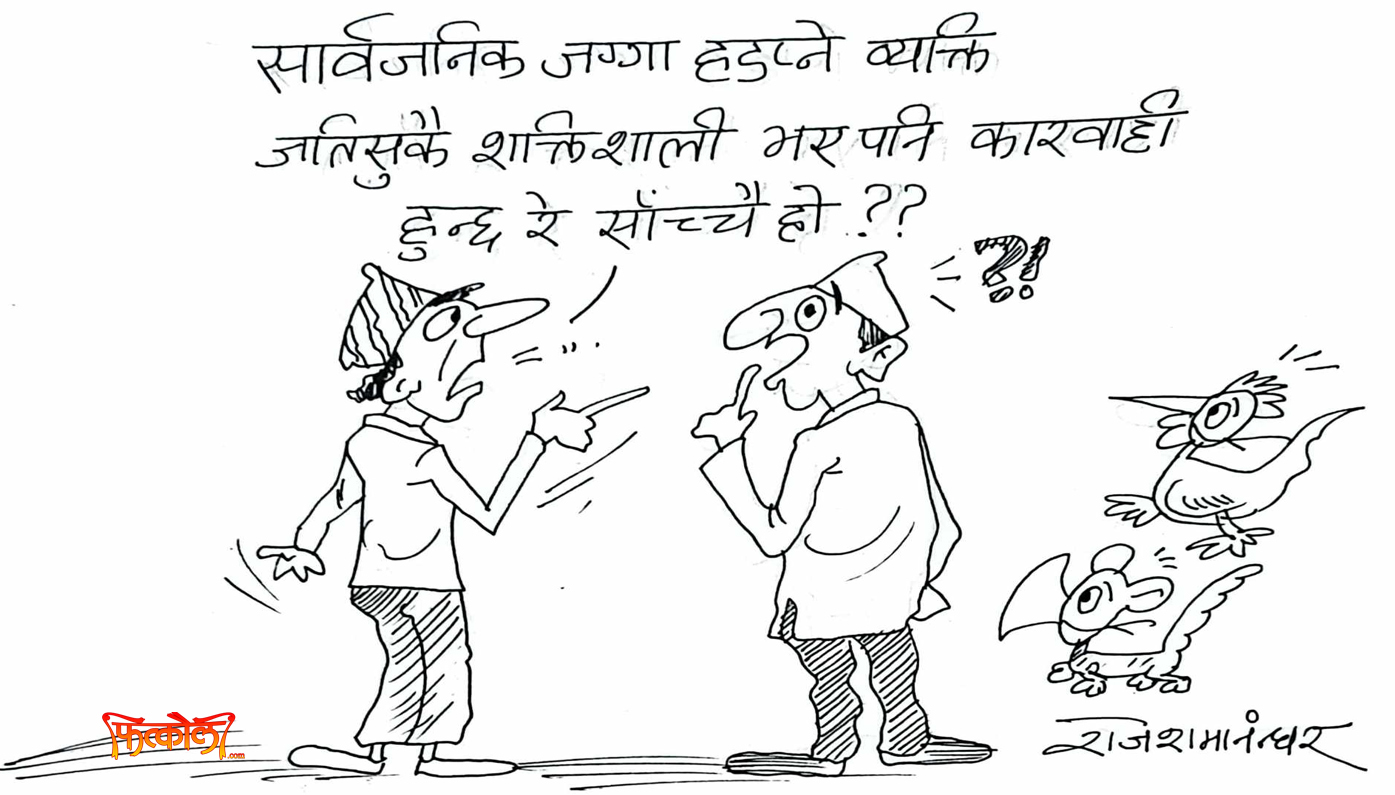 सार्वजनिक जग्गा हडप्ने व्यक्ति
जतिसुकै शक्तिशाली भए पनि कारवाही
हुन्छ रे साँच्चै हो ??
?!
फत्कोला.com